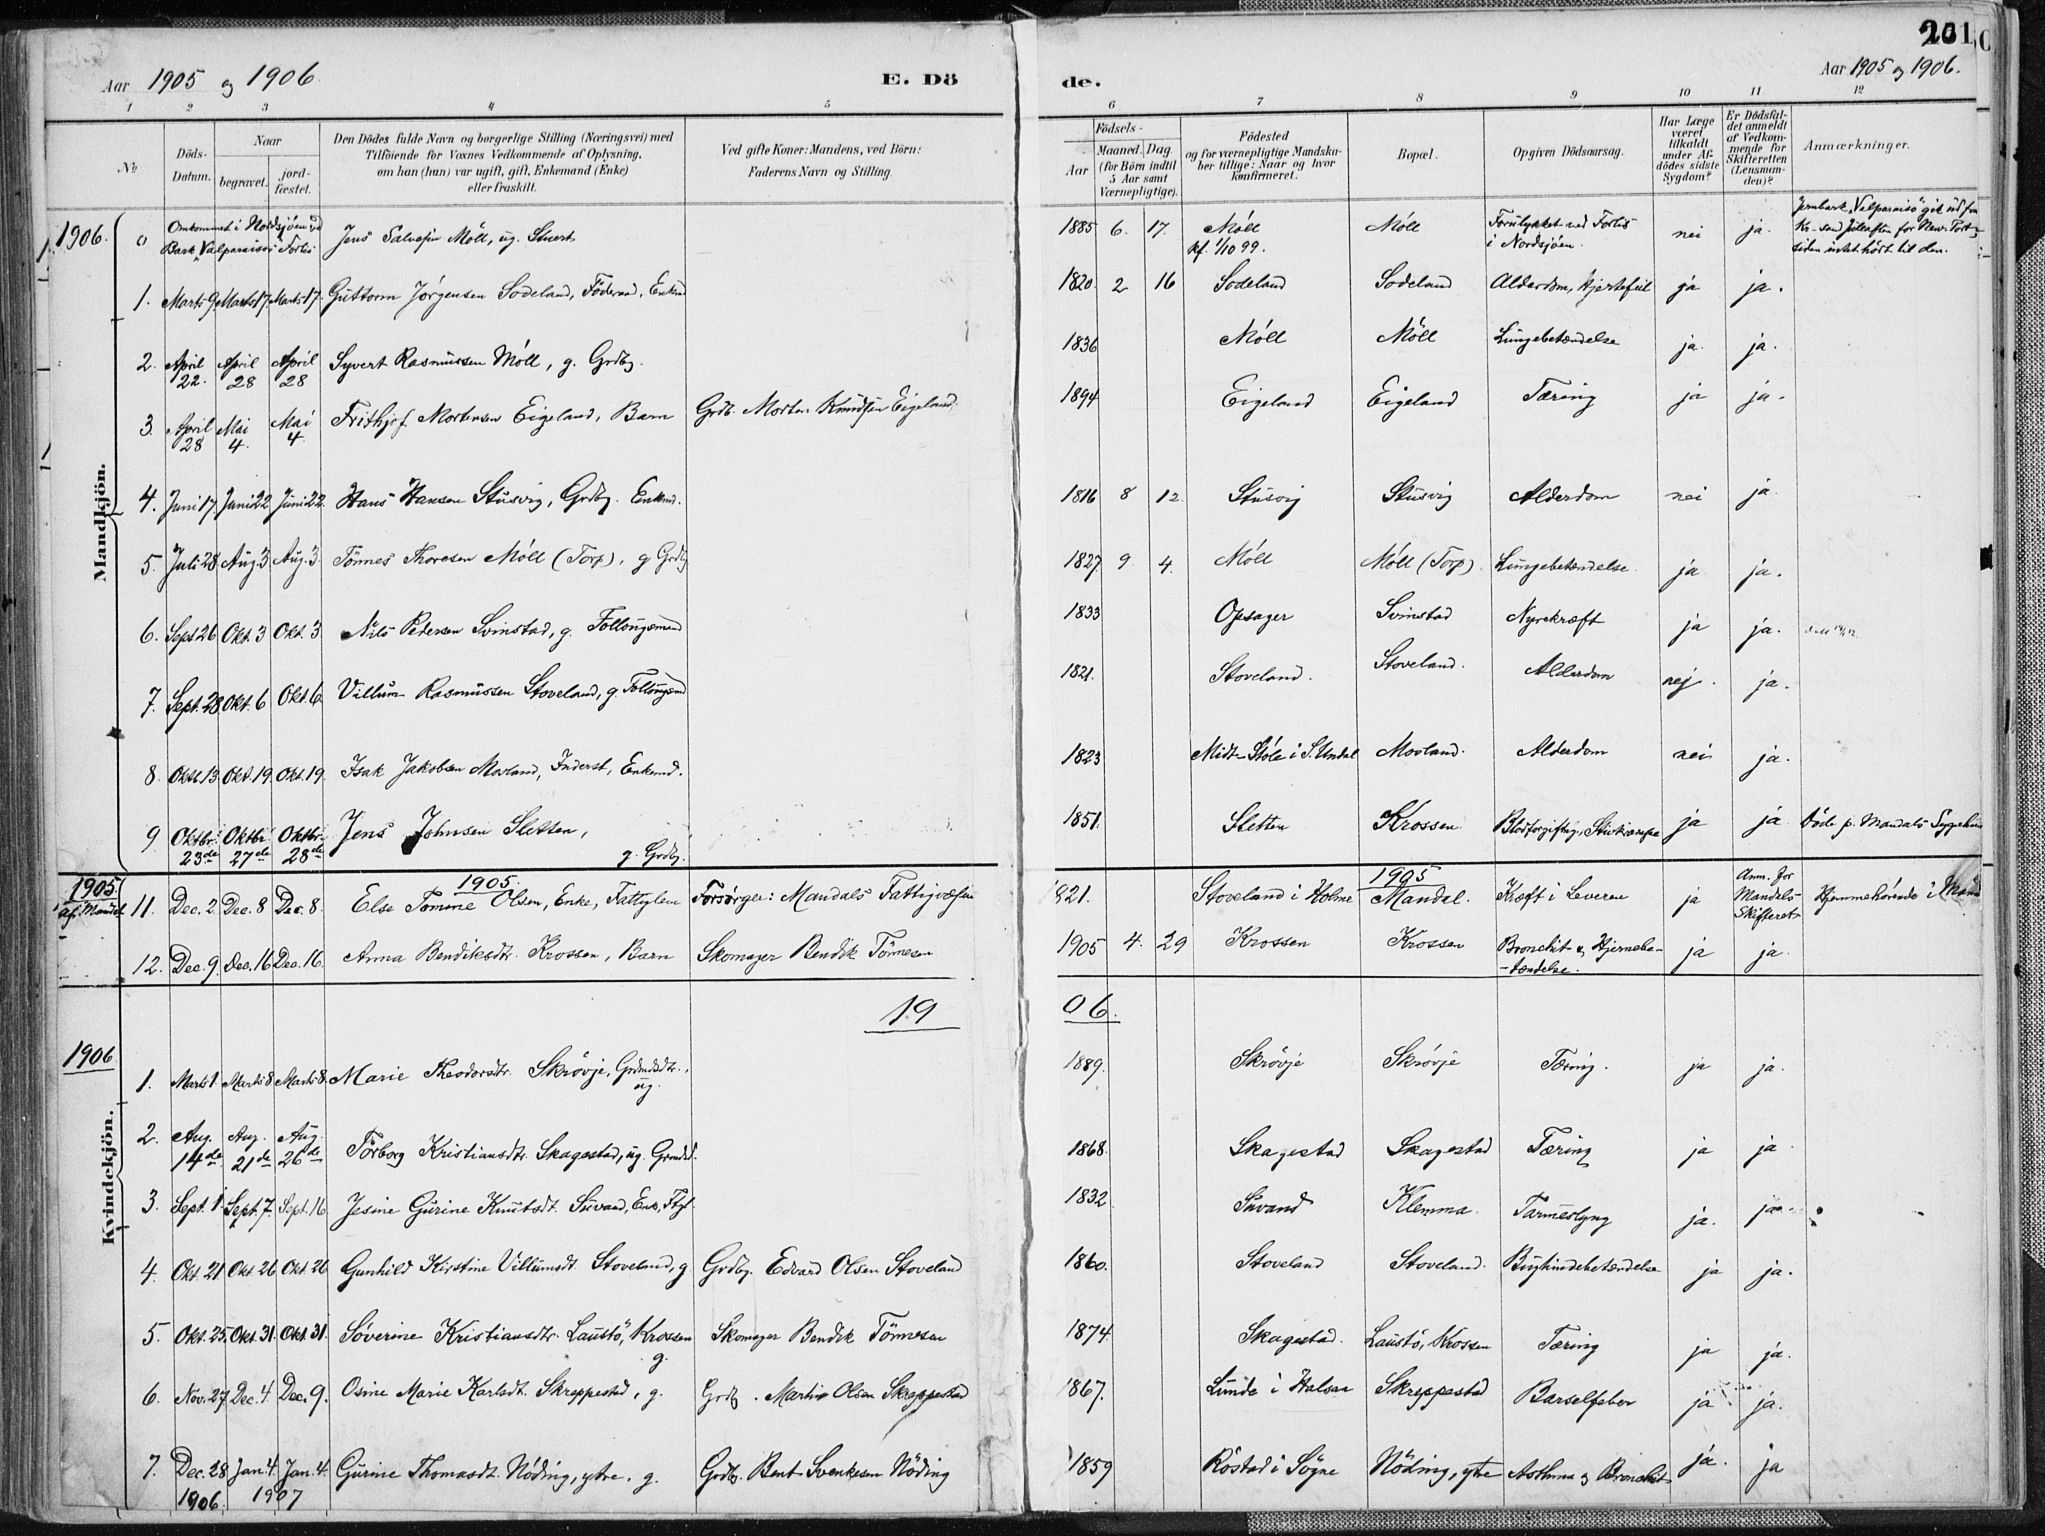 201
Aar 1905 og 1906.
E. Dö
de.
Aar 1905 og 1906.
1 2 3 4 5 6 7 8 9 10 11 12
No
Döds-Datum.
Naar
begravet.
jord-fæstet.
Den Dödes fulde Navn og borgerlige Stilling (Næringsvei) med
Tilföiende for Voxnes Vedkommende af Oplysning,
om han (hun) var ugift, gift, Enkemand (Enke)
eller fraskilt.
Ved gifte Koner: Mandens, ved Börn:
Faderens Navn og Stilling.
Födsels-
Aar
Maaned. Dag.
(for Börn indtil
5 Aar samt
Værnepligtige).
Födested
og for værnepligtige Mandska-
ber tillige: Naar og hvor
konfirmeret.
Bopæl.
Opgiven Dödsaarsag.
Har Læge
været
tilkaldt
under Af-
dödes sidste
Sygdom?
Er Dödsfal-
det anmeldt
af Vedkom-
mende for
Skifteretten
(Lensman-
den)?
Anmærkninger.
Mandkjön.
1906. 0 Omkommet i Nordsjøen ved
Bark "Valparaiso" Forties Jens Salvesen Möll, ug. Stuert 1885 6. 17. Möll
kf. 1/10 99. Möll Forulykket ved Forties
i Nordsjöen. nei ja. Jernbark "Valparaiso" gik ud fra
Kr.sand juleaften for New-Port
siden intet hört til den.
1. Marts 9. Marts 17. Marts 17. Guttorm Jörgensen Sodeland, Föderaad, Enkmd 1820 2 16 Sodeland Sodeland Alderdom, Hjertefeil ja ja.
2. April 22. April 28 April 28 Syvert Rasmussen Möll, g. Grdbg. 1836 Möll Möll Lungebetændelse ja. ja.
3. April 28 Mai 4. Mai 4. Frithjof Mortensen Eigeland, Barn Grdb. Morten Knudsen Eigeland. 1894 Eigeland Eigeland Tæring ja ja.
4. Juni 17. Juni 22 Juni 22. Hans Hansen Stusvig, Grdbg. Enkmd. 1816 8 12. Stusvig Stusvig Alderdom nei ja.
5. Juli 28 Aug. 3 Aug. 3 Tönnes Thoresen Möll (Torp), g Grdbg 1827 9. 4. Möll Möll (Torp). Lungebetændelse. ja ja.
6. Sept 26 Okt. 3 Okt. 3 Nils Pedersen Svinstad, g. Follougsmand 1833 Opsager Svinstad Nyrekræft ja ja.
7. Sept. 28. Okt. 6 Okt. 6. Villum Rasmussen Stoveland, g. Follougsmd 1821. Stoveland. Stoveland. Alderdom nej. ja.
8. Oktb. 13. Okt. 19. Okt. 19. Isak Jakobsen Movland, Inderst, Enkemd. 1823 Midt-Støle i S. Undal Movland. Alderdom nei ja.
9 Oktbr. 23de Oktbr. 27de Oktbr. 28de Jens Johnsen Sletten,
g. Grdbg. 1851. Sletten Krossen. Blodforgiftng, Stivkrampe ja ja. Döde p. Mandals Sygehus
1905.
af Mandal
1905.
1905
11. Dec. 2 Dec. 8 Dec. 8. Else Tomine Olsen, Enke, Fattiglem Forsørger: Mandals Fattigvæsen 821. Stoveland i Holme Mandal. Kræft i Leveren ja Anm. for
Mandals
Skifteret Hjemmehörende i Mand
12. Dec. 9. Dec. 16 Dec. 16. Anna Bendiksdtr. Krossen, Barn Skomager Bendik Tönnesen 1905 4. 29 Krossen Krossen Bronchit & Hjernebe-
-tændelse. ja ja.
19
06.
1906
Kvindekjön.
1. Marts 1. Marts 8. Marts 8. Marie Theodorsdtr. Skrövje, Grdmdsdtr.,
ug. 1889. Skrövje Skrövje Tæring. ja ja.
2. Aug. 14de Aug. 21de Aug. 26de Törborg Kristiansdtr. Skagestad, ug. Grmdsd. 1868. Skagestad Skagestad Tæring ja ja
3. Sept. 1. Sept. 7. Sept. 16 Jesine Gurine Knutsdt. Suvand, Enk, Ftgl. 1832 Suvand Klemma. Tarmeslyng ja. ja.
4. Okt. 21 Okt. 26 Okt. 26 Gunhild Kirstine Villumsdt. Stoveland, g Grdbg. Edvard Olsen Stoveland 1860. Stoveland Stoveland. Bughindebetændelse ja ja.
5. Okt. 25. Okt. 31. Okt. 31. Söverine Kristiansdtr. Laustö, Krossen
g. Skomager Bendik Tönnesen 1874. Skagestad. Laustö, Krossen Tæring ja ja.
6. Nov. 27. Dec. 4. Dec. 9. Osine Marie Karlsdt. Skreppestad, g. Grdbg. Martin Olsen Skreppestad 1867. Lunde i Halsaa Skreppestad Barselfeber ja ja.
7. Dec. 28 Jan. 4. Jan. 4. Gurine Thomasdt. Nöding, ytre. g. Grdbg. Bent Svenkesen Nöding 1859 Röstad i Sögne Nöding, ytre Asthma & Bronchit ja. ja
1906. 1907